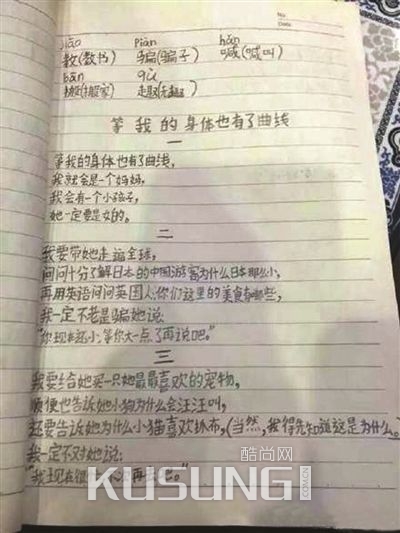 No
Date
jiāo piàn hǎn
教(教书) 骗(骗子) 喊(喊叫)
bān qù
搬(搬家) 趣(无趣)
等我的身体也有了曲线
一
等我的身体也有了曲线,
我就会是一个妈妈,
我会有一个小孩子,
她一定要是女的。
二
我要带她走遍全球,
问问十分了解日本的中国游客为什么日本那么小,
再用英语问问英国人:你们这里的美食有哪些,
我一定不老是骗她说:
"你现在还小,等你大一点了再说吧。"
三
我要给她买一只她最最喜欢的宠物,
顺便也告诉她小狗为什么会汪汪叫,
还要告诉她为什么小猫喜欢抓布,(当然,我得先知道这是为什么。)
我一定不对她说:
"我现在很 再 吧。"
酷尚网
KUSUNG1
.COM.CN